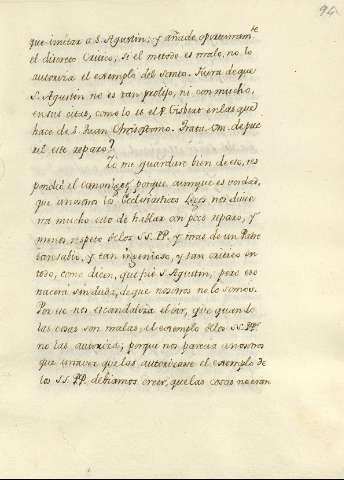 94
que imitar a S. Agustin; y añade oportunam.te
el discreto Critico, si el metodo es malo, no lo
autoriza el exemplo del Santo. Fuera de que
S. Agustin no es tan prolijo, ni con mucho,
en sus citas, como lo es el P. Gisbert en las que
hace de S. Juan Chrisostomo.
este reparo?
Yo me guardare bien de eso, res
pondió el canonigo; porque aunque es verdad,
que a nosotros los Ecclesiasticos Legos nos
mucho esto de hablar con poco reparo, y
menos respeto de los SS. PP. y mas de un Padre
tan sabio, y tan ingenioso, y tan critico en
todo, como dicen, que fué S. Agustin; pero eso
nacerá sin duda, de que nosotros no lo somos.
Porque nos escandaliza el oir, que quando
las cosas son malas, el exemplo de los SS. PP.
no las autoriza; porque nos parecia a nosotros
que una vez que las autorizase el exemplo de
los S.S. P.P. debiamos creer, que las cosas no eran